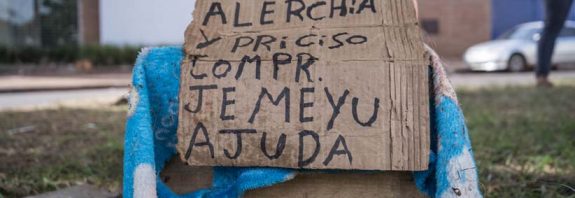 ALERCHIA
Y PRICISO
COMPR.
JE MEYU
AJUDA